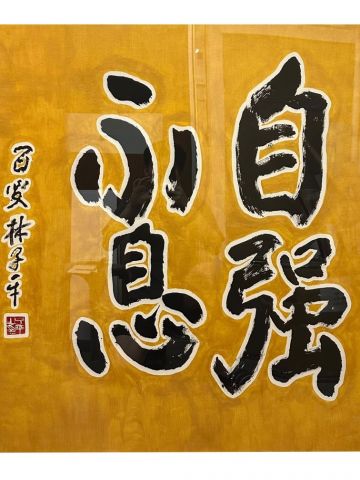 自强
不息
百叟林子平